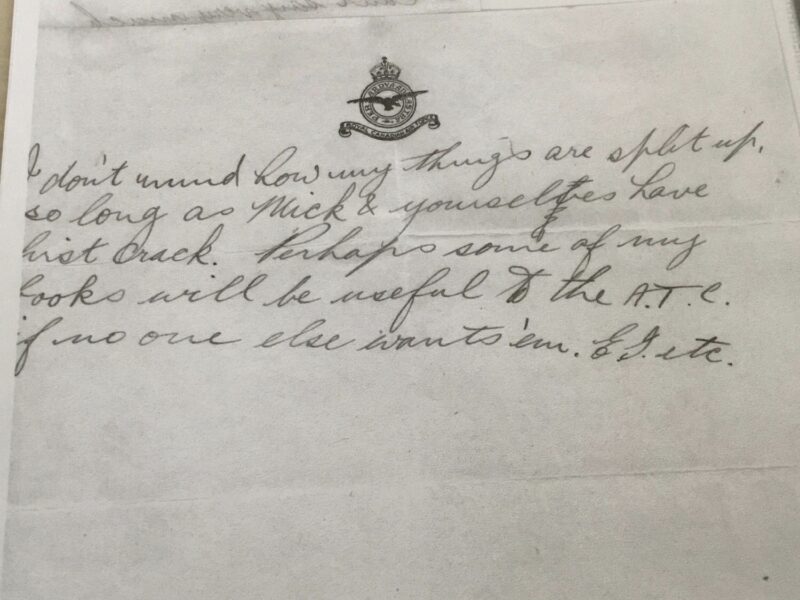 PER ARDUA AD ASTRA
ROYAL CANADIAN AIR FORCE
I don't mind how my things are split up,
so long as Mick & yourselves have
first crack. Perhaps some of my
books will be useful to the A.T.C.
if no one else wants 'em.